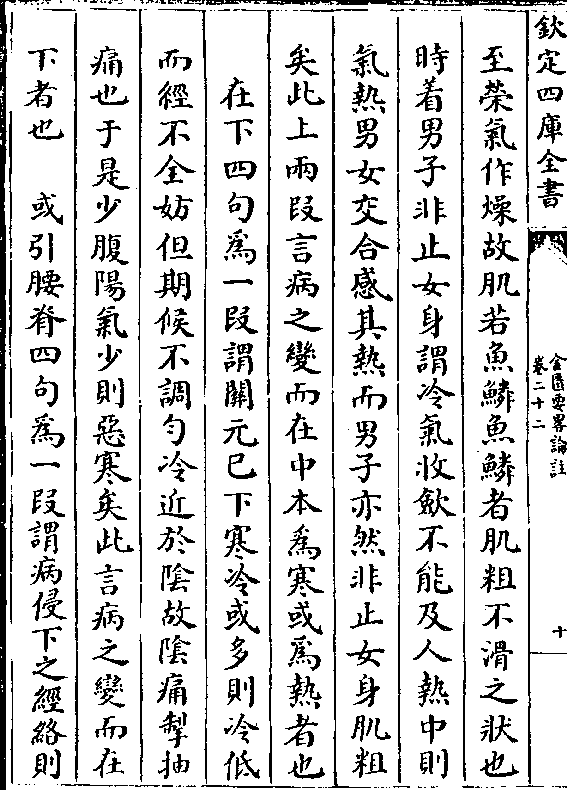 欽定四庫全書
金匱要畧論註
卷二十二
十
至榮氣作燥故肌若魚鱗魚鱗者肌粗不滑之狀也
時着男子非止女身謂冷氣收斂不能及人熱中則
氣熱男女交合感其熱而男子亦然非止女身肌粗
矣此上兩段言病之變而在中本為寒或為熱者也
在下四句為一段謂關元已下寒冷或多則冷低
而經不全妨但期候不調勻冷近於陰故陰痛掣抽
痛也于是少腹陽氣少則惡寒矣此言病之變而在
下者也　或引腰脊四句為一段謂病侵下之經絡則